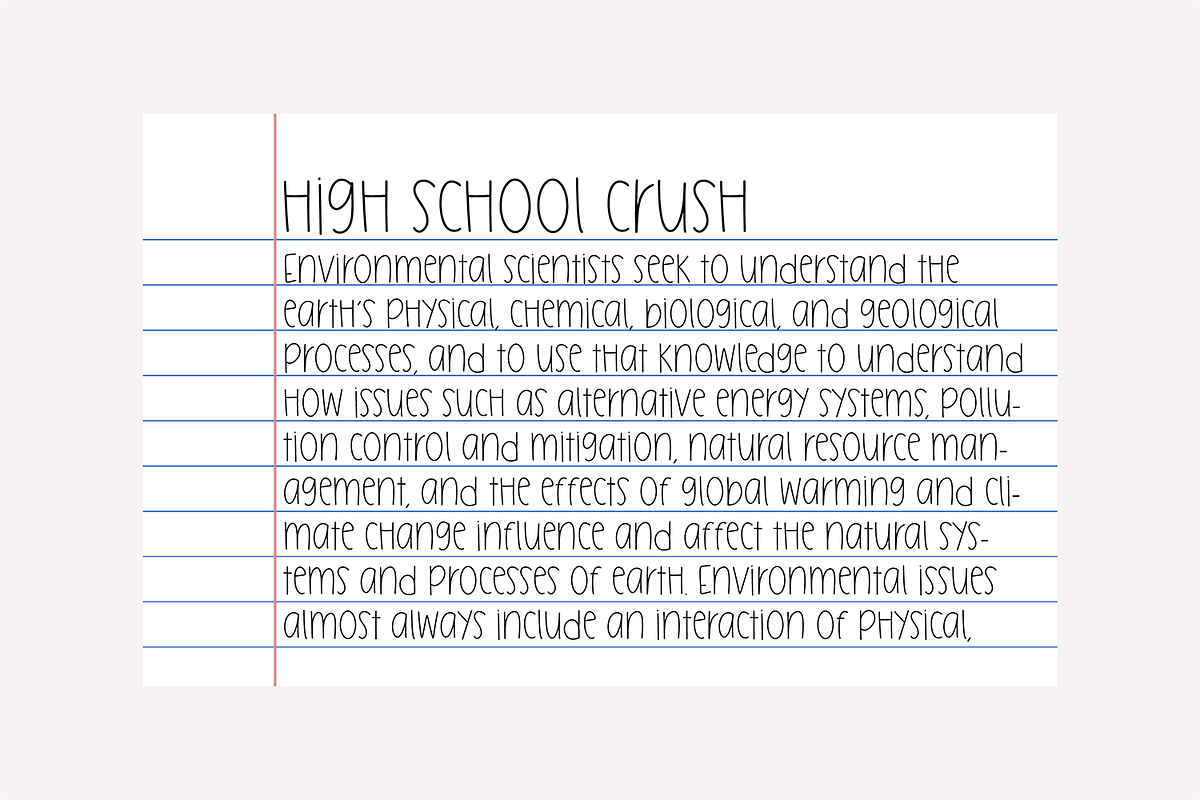 High School Crush
Environmental scientists seek to understand the
earth's physical, chemical, biological, and geological
processes, and to use that knowledge to understand
how issues such as alternative energy systems, pollu-
tion control and mitigation, natural resource man-
agement, and the effects of global warming and cli-
mate change influence and affect the natural sys-
tems and processes of earth. Environmental issues
almost always include an interaction of physical,